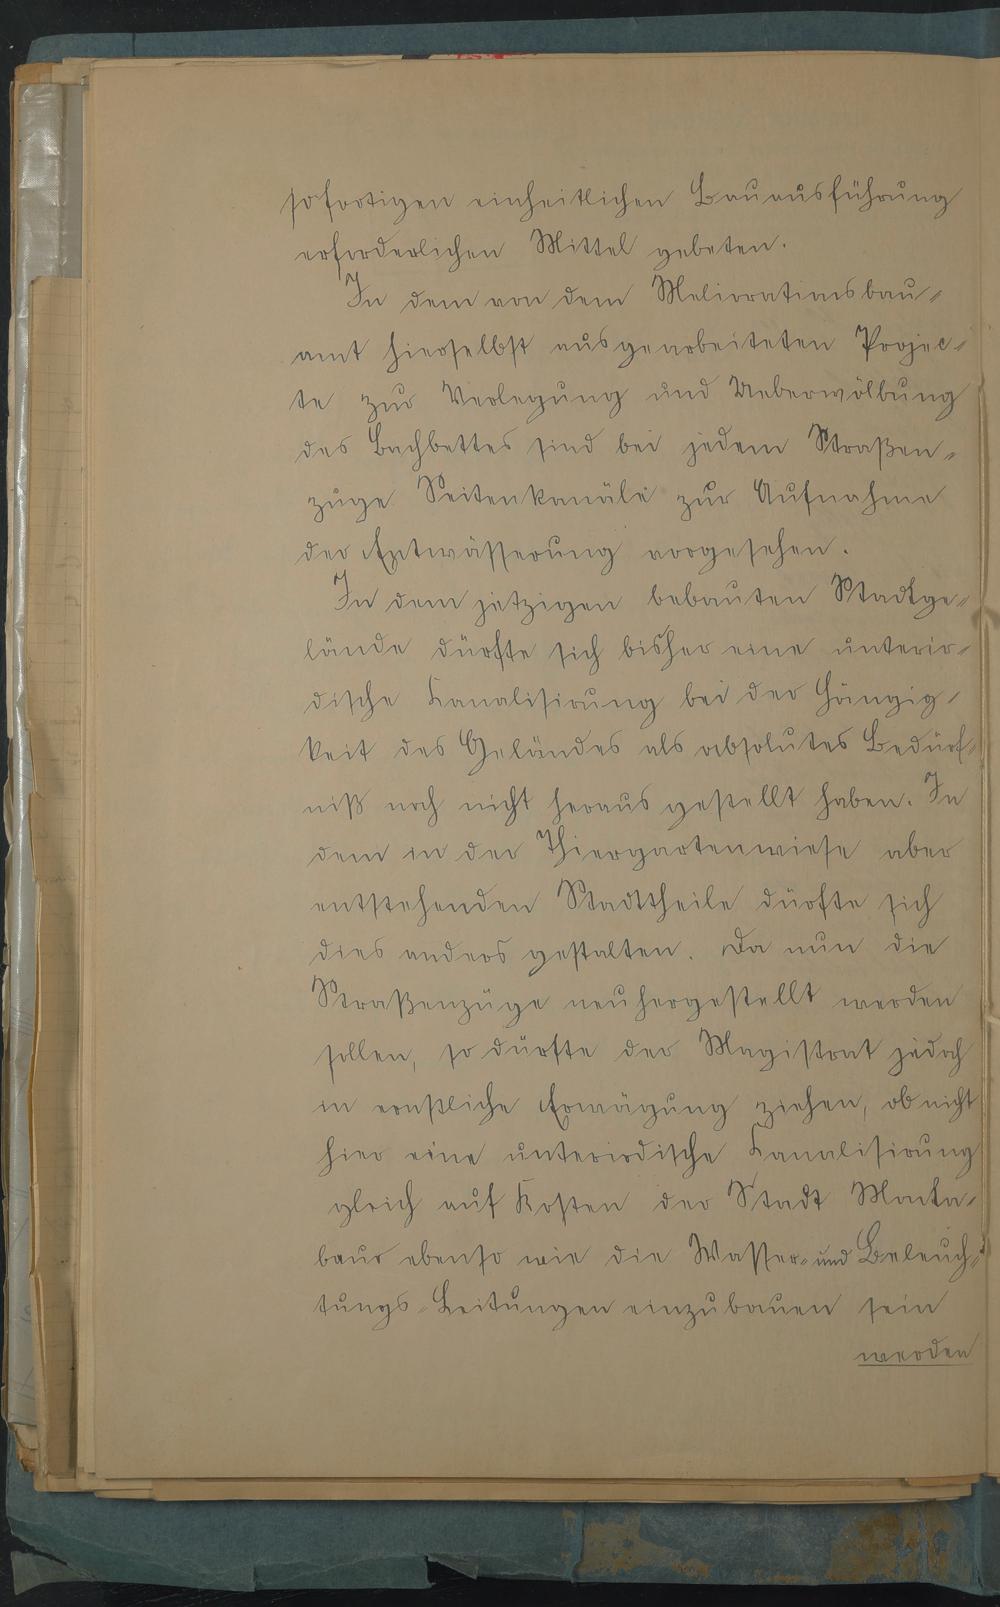 sofortigen einheitlichen Bauausführung
erforderlichen Mittel gebeten.
In dem von dem Meliorationsbau-
amt hierselbst ausgearbeiteten Projec-
te zur Verlegung und Ueberwölbung
des Bachbettes sind bei jedem Straßen-
zuge Seitenkanäle zur Aufnahme
der Entwässerung vorgesehen.
In dem jetzigen bebauten Stadtge-
lände dürfte sich bisher eine unterir-
dische Kanalisirung bei der Hängig-
keit des Geländes als absolutes Bedürf-
niß noch nicht heraus gestellt haben. In
dem in der Thiergartenwiese aber
entstehenden Stadttheile dürfte sich
dies anders gestalten. Da nun die
Straßenzüge neuhergestellt werden
sollen, so dürfte der Magistrat jedoch
in ernstliche Erwägung ziehen, ob nicht
hier eine unterirdische Kanalisirung
gleich auf Kosten der Stadt Monta-
baur ebenso wie die Wasser- und Beleuch-
tungs-Leitungen einzubauen sein
werden